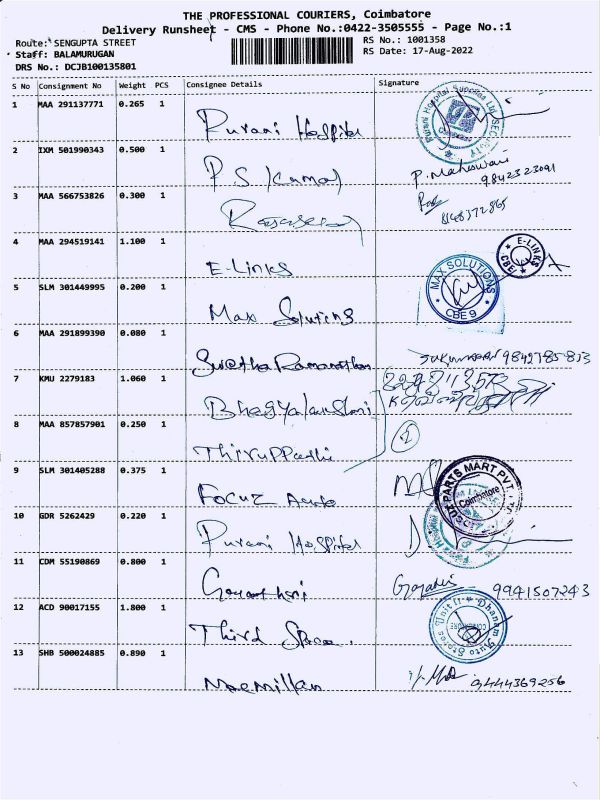 THE PROFESSIONAL COURIERS, Coimbatore
Delivery Runsheet - CMS - Phone No.:0422-3505555 - Page No.:1
Route: SENGUPTA STREET
RS No.: 1001358
Staff: BALAMURUGAN
RS Date: 17-Aug-2022
DRS No.: DCJB100135801
S No Consignment No Weight PCS Consignee Details Signature
1 MAA 291137771 0.265 1
Purani Hospital
2 IXM 501990343 0.500 1
P S Kamal
P. Maheswari
9842323091
3 MAA 566753826 0.300 1
4 MAA 294519141 1.100 1
E-Links
E-LINKS
CBE
5 SLM 301449995 0.200 1
Max Solutions
MAX SOLUTIONS
CBE 9
6 MAA 291899390 0.080 1
Swetha Ramanathan
7 KMU 2279183 1.060 1
Bhagyalakshmi
8 MAA 857857901 0.250 1
Thiruppathi
9 SLM 301405288 0.375 1
Focuz
PARTS MART PVT
Coimbatore
10 GDR 5262429 0.220 1
Purani Hospital
11 CDM 55190869 0.800 1
Gayathri
Gayatri
9941507243
12 ACD 90017155 1.800 1
Third Space
Dhanam Auto Stores Unit II
13 SHB 500024885 0.890 1
Macmillan
9444369256